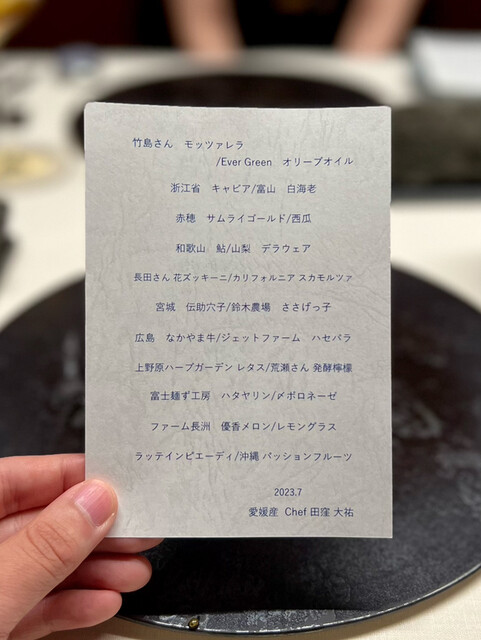 竹島さん　モッツァレラ
/Ever Green　オリーブオイル
浙江省　キャビア/富山　白海老
赤穂　サムライゴールド/西瓜
和歌山　鮎/山梨　デラウェア
長田さん 花ズッキーニ/カリフォルニア スカモルツァ
宮城　伝助穴子/鈴木農場　ささげっ子
広島　なかやま牛/ジェットファーム　ハセパラ
上野原ハーブガーデン レタス/荒瀬さん 発酵檸檬
富士麺ず工房　ハタヤリン/〆ボロネーゼ
ファーム長洲　優香メロン/レモングラス
ラッテインピエーディ/沖縄 パッションフルーツ
2023.7
愛媛産　Chef 田窪 大祐